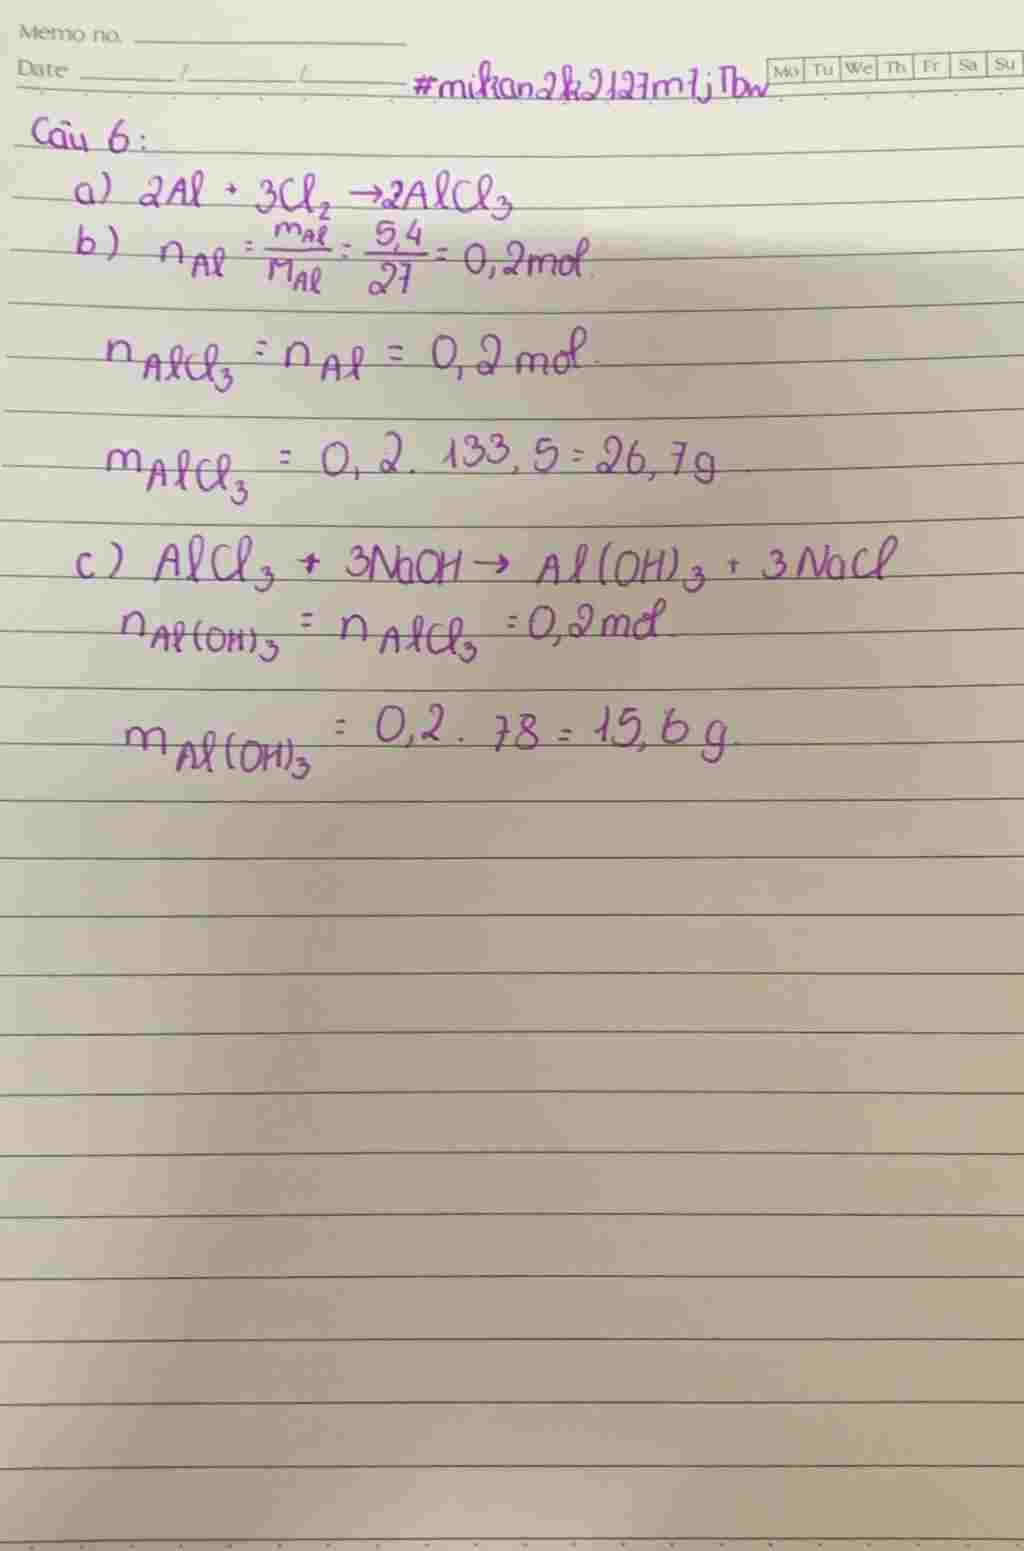 Memo no.
Date / /
Mo Tu We Th Fr Sa Su
Câu 6:
a) 2Al + 3Cl₂ → 2AlCl₃
b) n_Al = m_Al / M_Al = 5,4 / 27 = 0,2 mol.
n_AlCl₃ = n_Al = 0,2 mol.
m_AlCl₃ = 0,2 . 133,5 = 26,7g
c) AlCl₃ + 3NaOH → Al(OH)₃ + 3NaCl
n_Al(OH)₃ = n_AlCl₃ = 0,2 mol
m_Al(OH)₃ = 0,2 . 78 = 15,6 g.